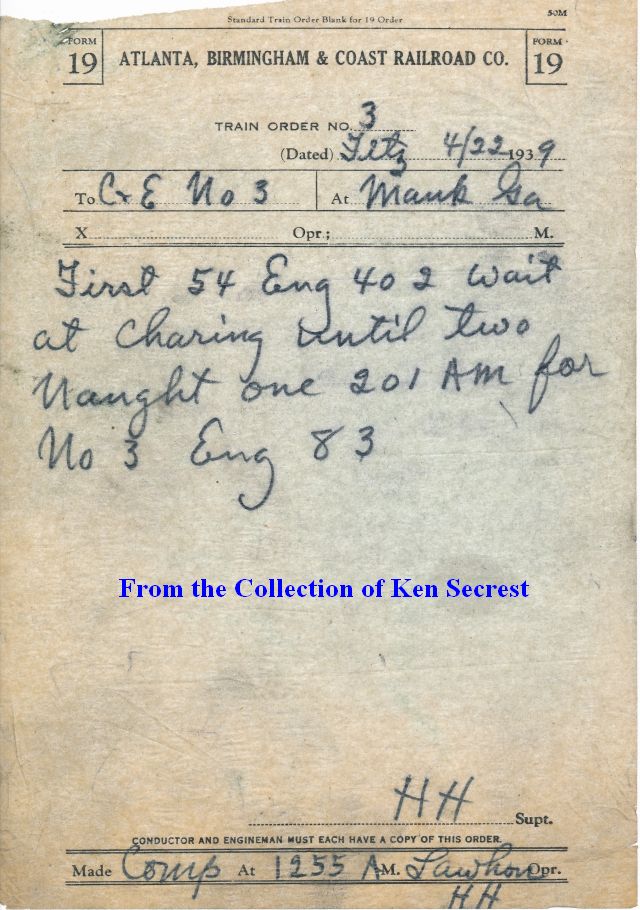 Standard Train Order Blank for 19 Order 50M
FORM 19 ATLANTA, BIRMINGHAM & COAST RAILROAD CO. FORM 19
TRAIN ORDER NO. 3
(Dated) 4/22 1939
To C+E No 3 At Mauk Ga
X Opr.; M.
First 54 Eng 402 wait
at Charing until two
Naught one 201 AM for
No 3 Eng 83
From the Collection of Ken Secrest
HH Supt.
CONDUCTOR AND ENGINEMAN MUST EACH HAVE A COPY OF THIS ORDER.
Made Comp At 1255 A M. Lawhon Opr.
HH